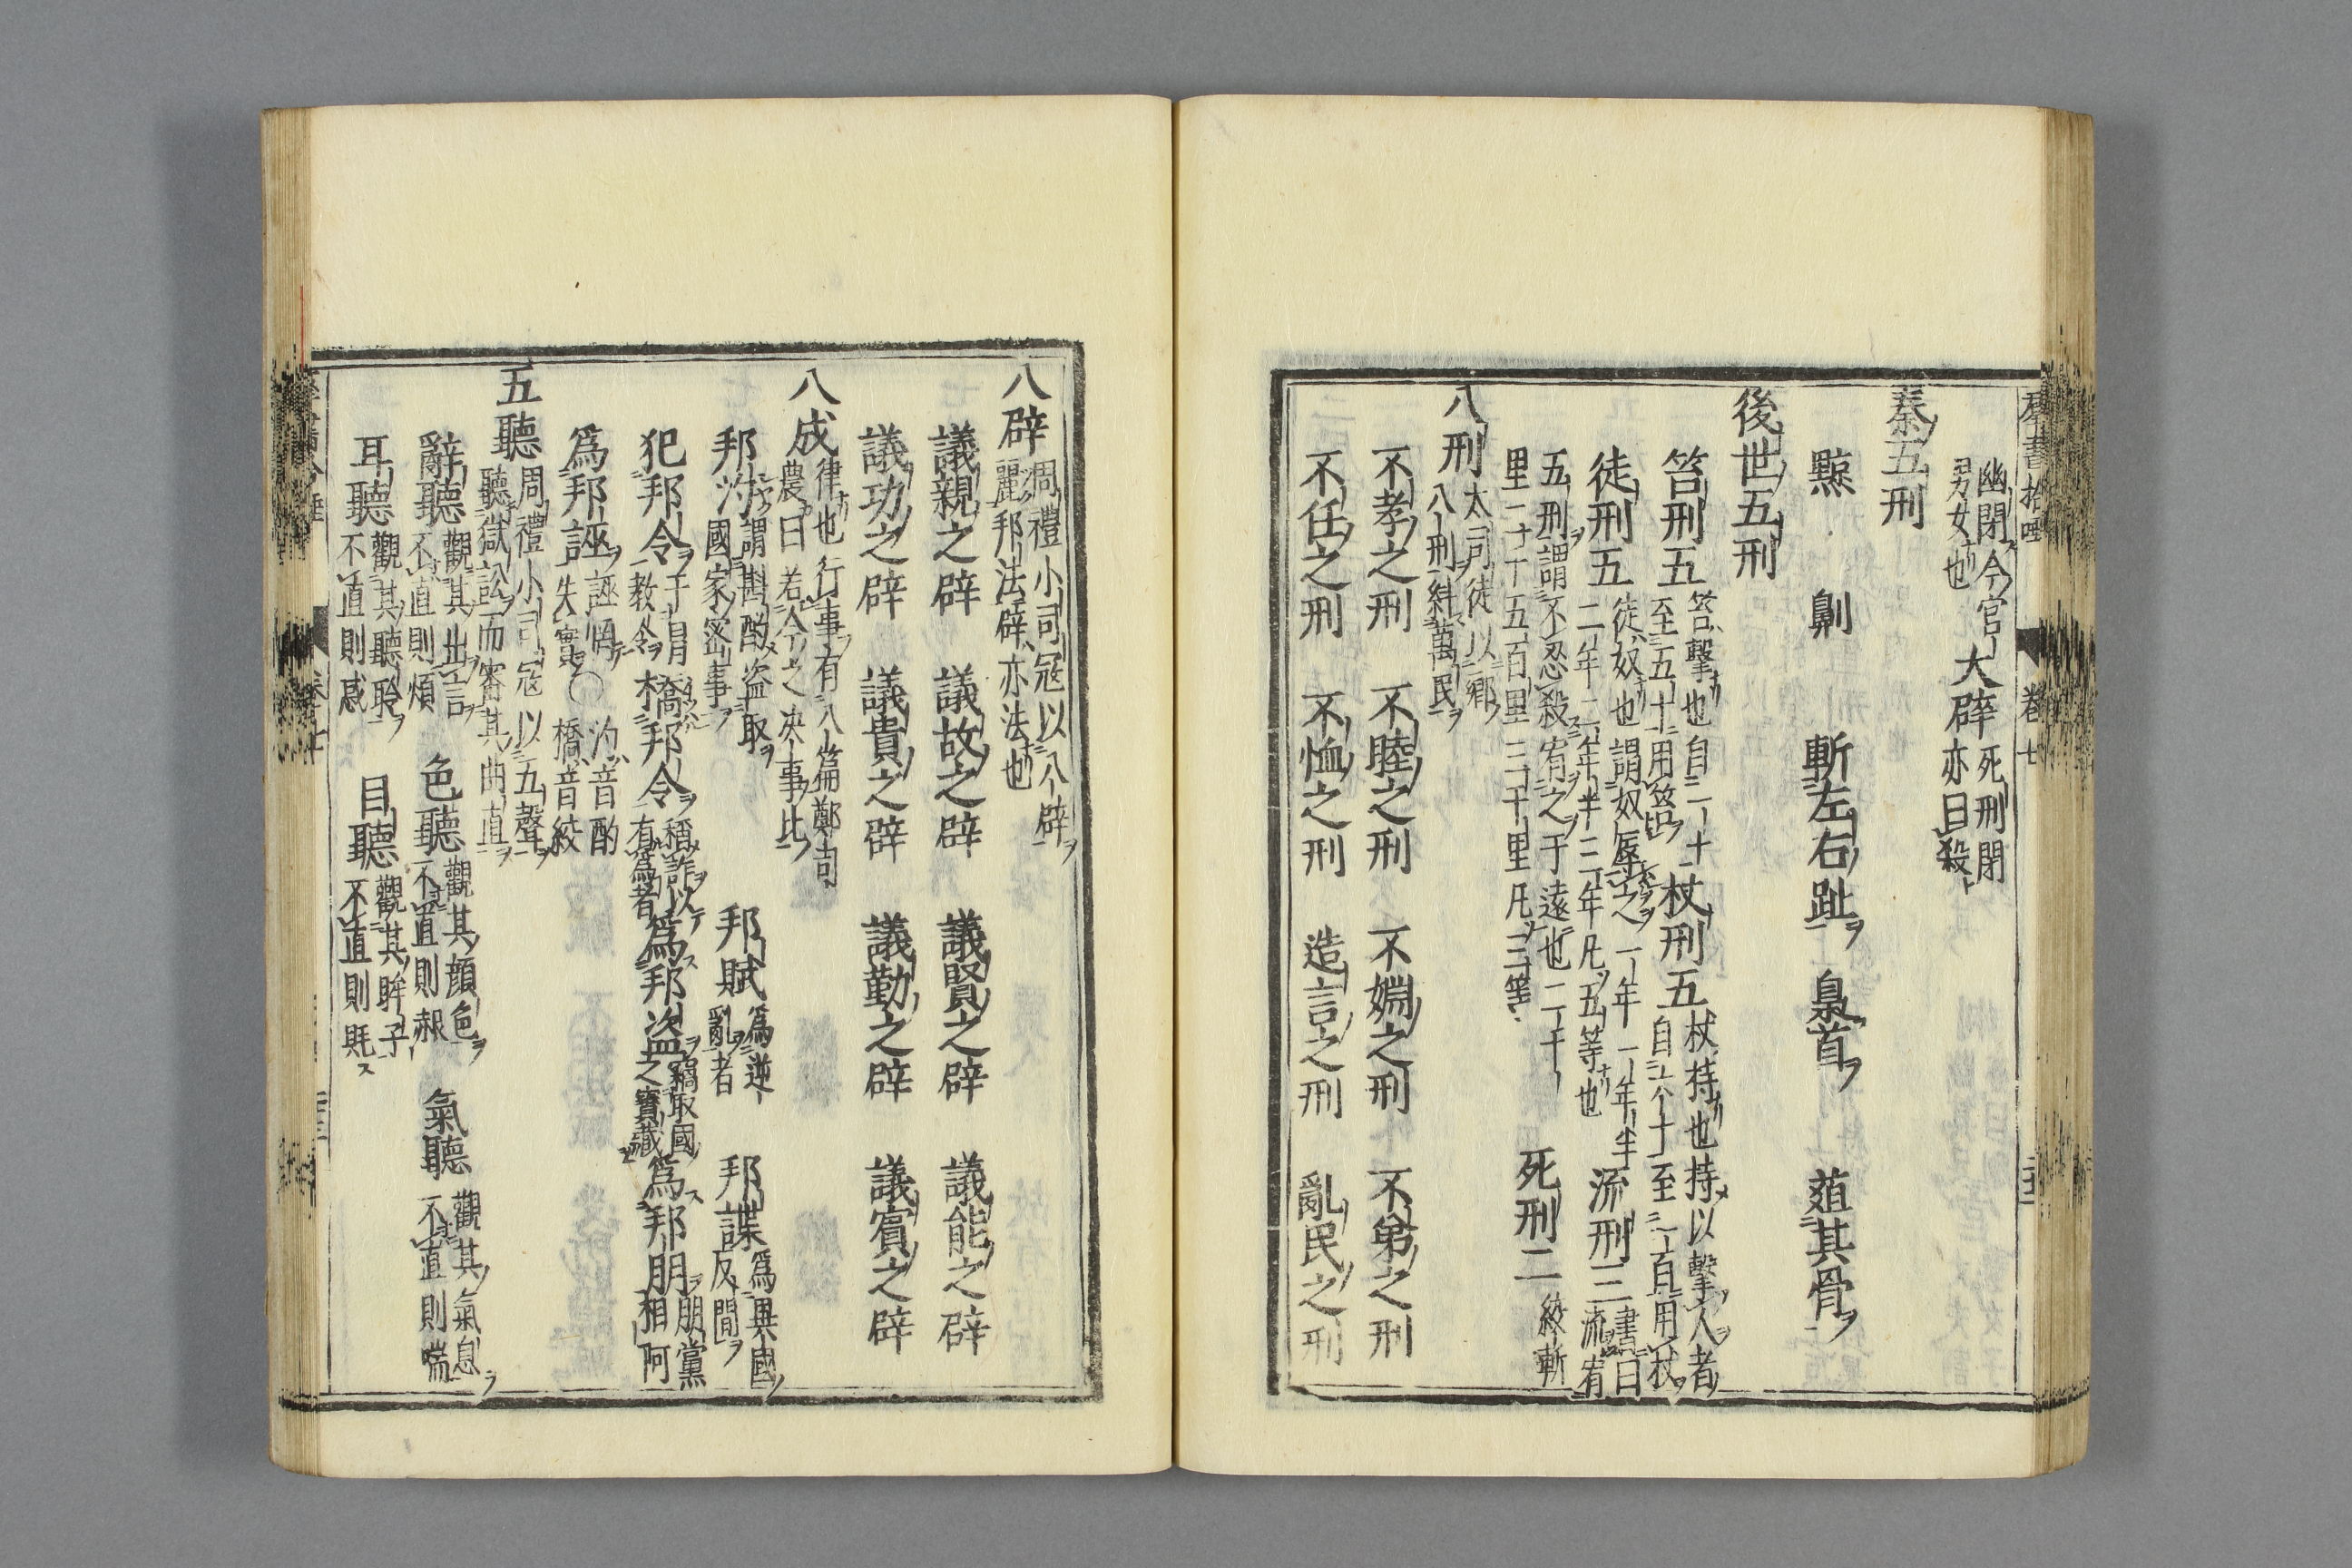 幽閉今官
男女也
大辟
死刑閉
亦曰殺
秦五刑
黥 劓 斬左右趾 梟首 葅其骨
後世五刑
笞刑五
笞擊也自一十
至五十用笞
杖刑五
杖持也持以擊人者
自六十至一百用杖
徒刑五
徒奴也謂奴辱之一年一年半
二年二年半三年凡五等也
流刑三
書曰流宥
五刑謂不忍殺宥之于遠也二千
里二千五百里三千里凡三等
死刑二
絞斬
八刑
大司徒以鄉
八刑糾萬民
不孝之刑 不睦之刑 不婣之刑 不弟之刑
不任之刑 不恤之刑 造言之刑 亂民之刑
八辟
周禮小司寇以八辟
麗邦法辟亦法也
議親之辟 議故之辟 議賢之辟 議能之辟
議功之辟 議貴之辟 議勤之辟 議賓之辟
八成
律也行事有八篇鄭司
農曰若今之決事比
邦汋
謂斟酌盜取
國家密事
邦賊
爲逆
亂者
邦諜
爲異國
反間
犯邦令
干冐
教令
橋邦令
稱詐以
有爲者
爲邦盜
竊取國
之寶藏
爲邦朋
朋黨
相阿
爲邦誣
誣惘
失實
○汋音酌
橋音絞
五聽
周禮小司寇以五聲
聽獄訟而審其曲直
辭聽
觀其出言
不直則煩
色聽
觀其顔色
不直則赧
氣聽
觀其氣息
不直則喘
耳聽
觀其聽聆
不直則惑
目聽
觀其眸子
不直則眊